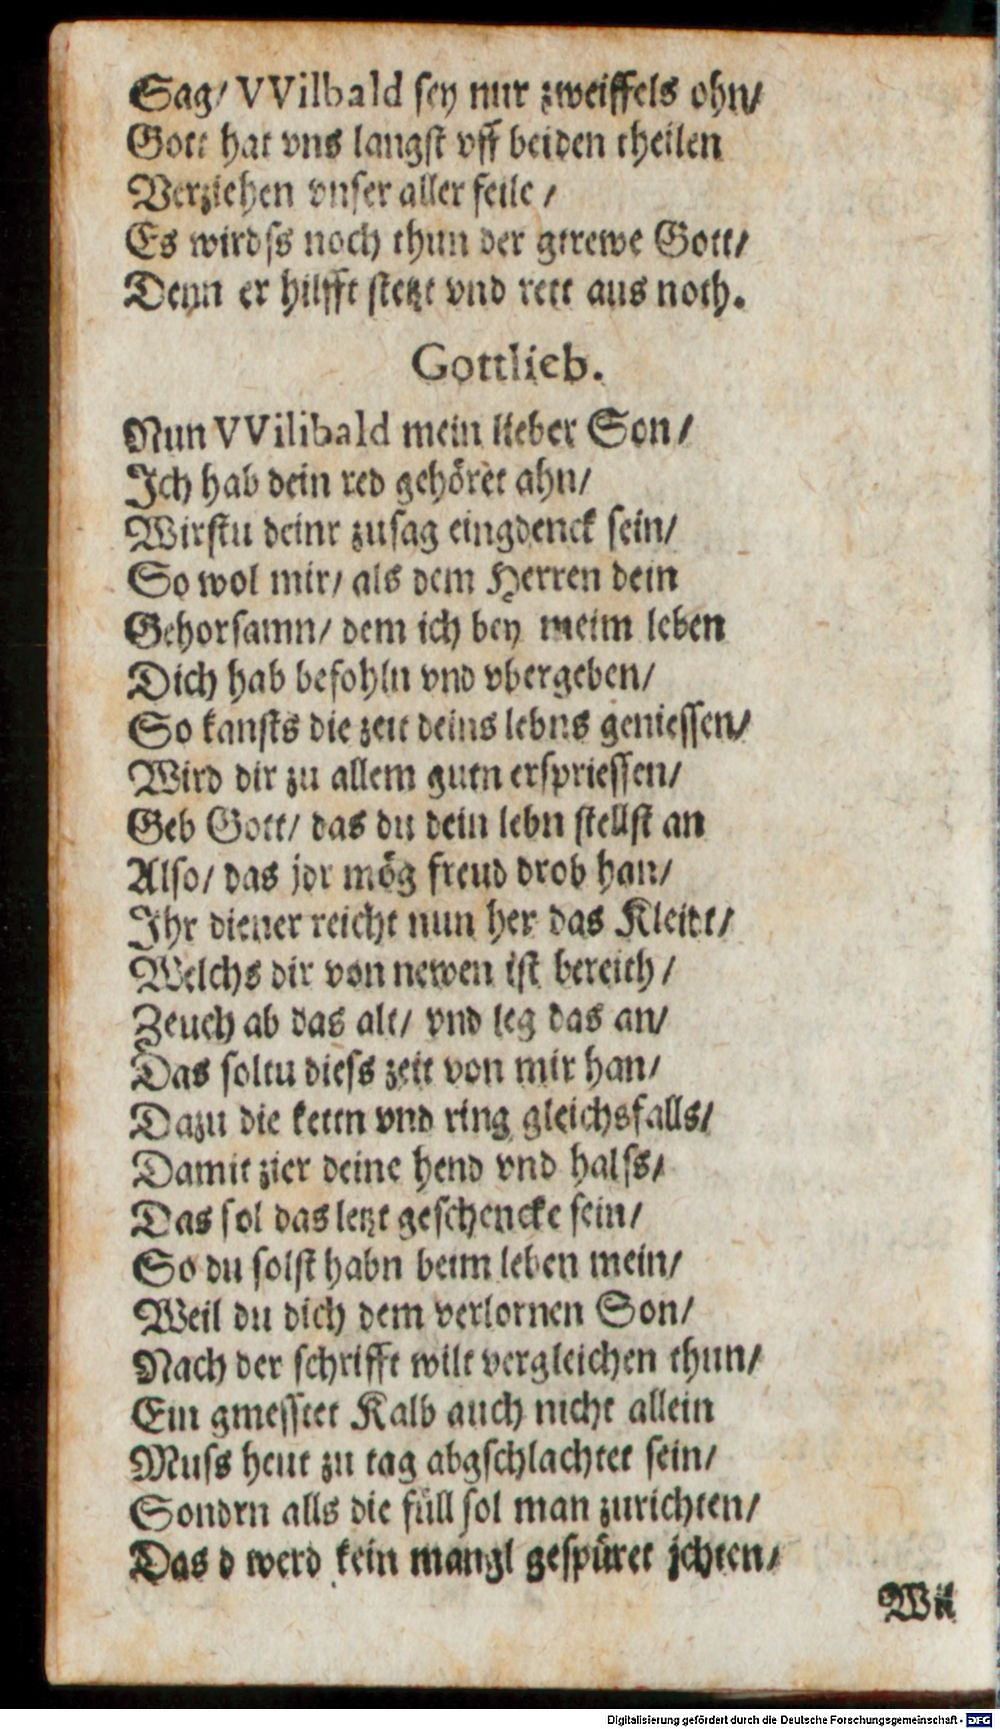 Sag/ VVilbald sey nur zweiffels ohn/
Gott hat vns langst vff beiden theilen
Verziehen vnser aller feile /
Es wirdss noch thun der gtrewe Gott/
Denn er hilfft stetzt vnd rett aus noth.
Gottlieb.
Nun VVilibald mein lieber Son/
Ich hab dein red gehöret ahn/
Wirstu deinr zusag eingdenck sein/
So wol mir/ als dem Herren dein
Gehorsamn/ dem ich bey meim leben
Dich hab befohln vnd vbergeben/
So kansts die zeit deins lebns geniessen/
Wird dir zu allem gutn erspriessen/
Geb Gott/ das du dein lebn stellst an
Also/ das jdr mög freud drob han/
Ihr diener reicht nun her das Kleidt/
Welchs dir von newen ist bereith/
Zeuch ab das alt/ vnd leg das an/
Das soltu diess zeit von mir han/
Dazu die kettn vnd ring gleichsfalls/
Damit zier deine hend vnd halss/
Das sol das letzt geschencke sein/
So du solst habn beim leben mein/
Weil du dich dem verlornen Son/
Nach der schrifft wilt vergleichen thun/
Ein gmesstet Kalb auch nicht allein
Muss heut zu tag abgschlachtet sein/
Sondrn alls die füll sol man zurichten/
Das d werd kein mangl gespüret jchten/
Wil
Digitalisierung gefördert durch die Deutsche Forschungsgemeinschaft - DFG